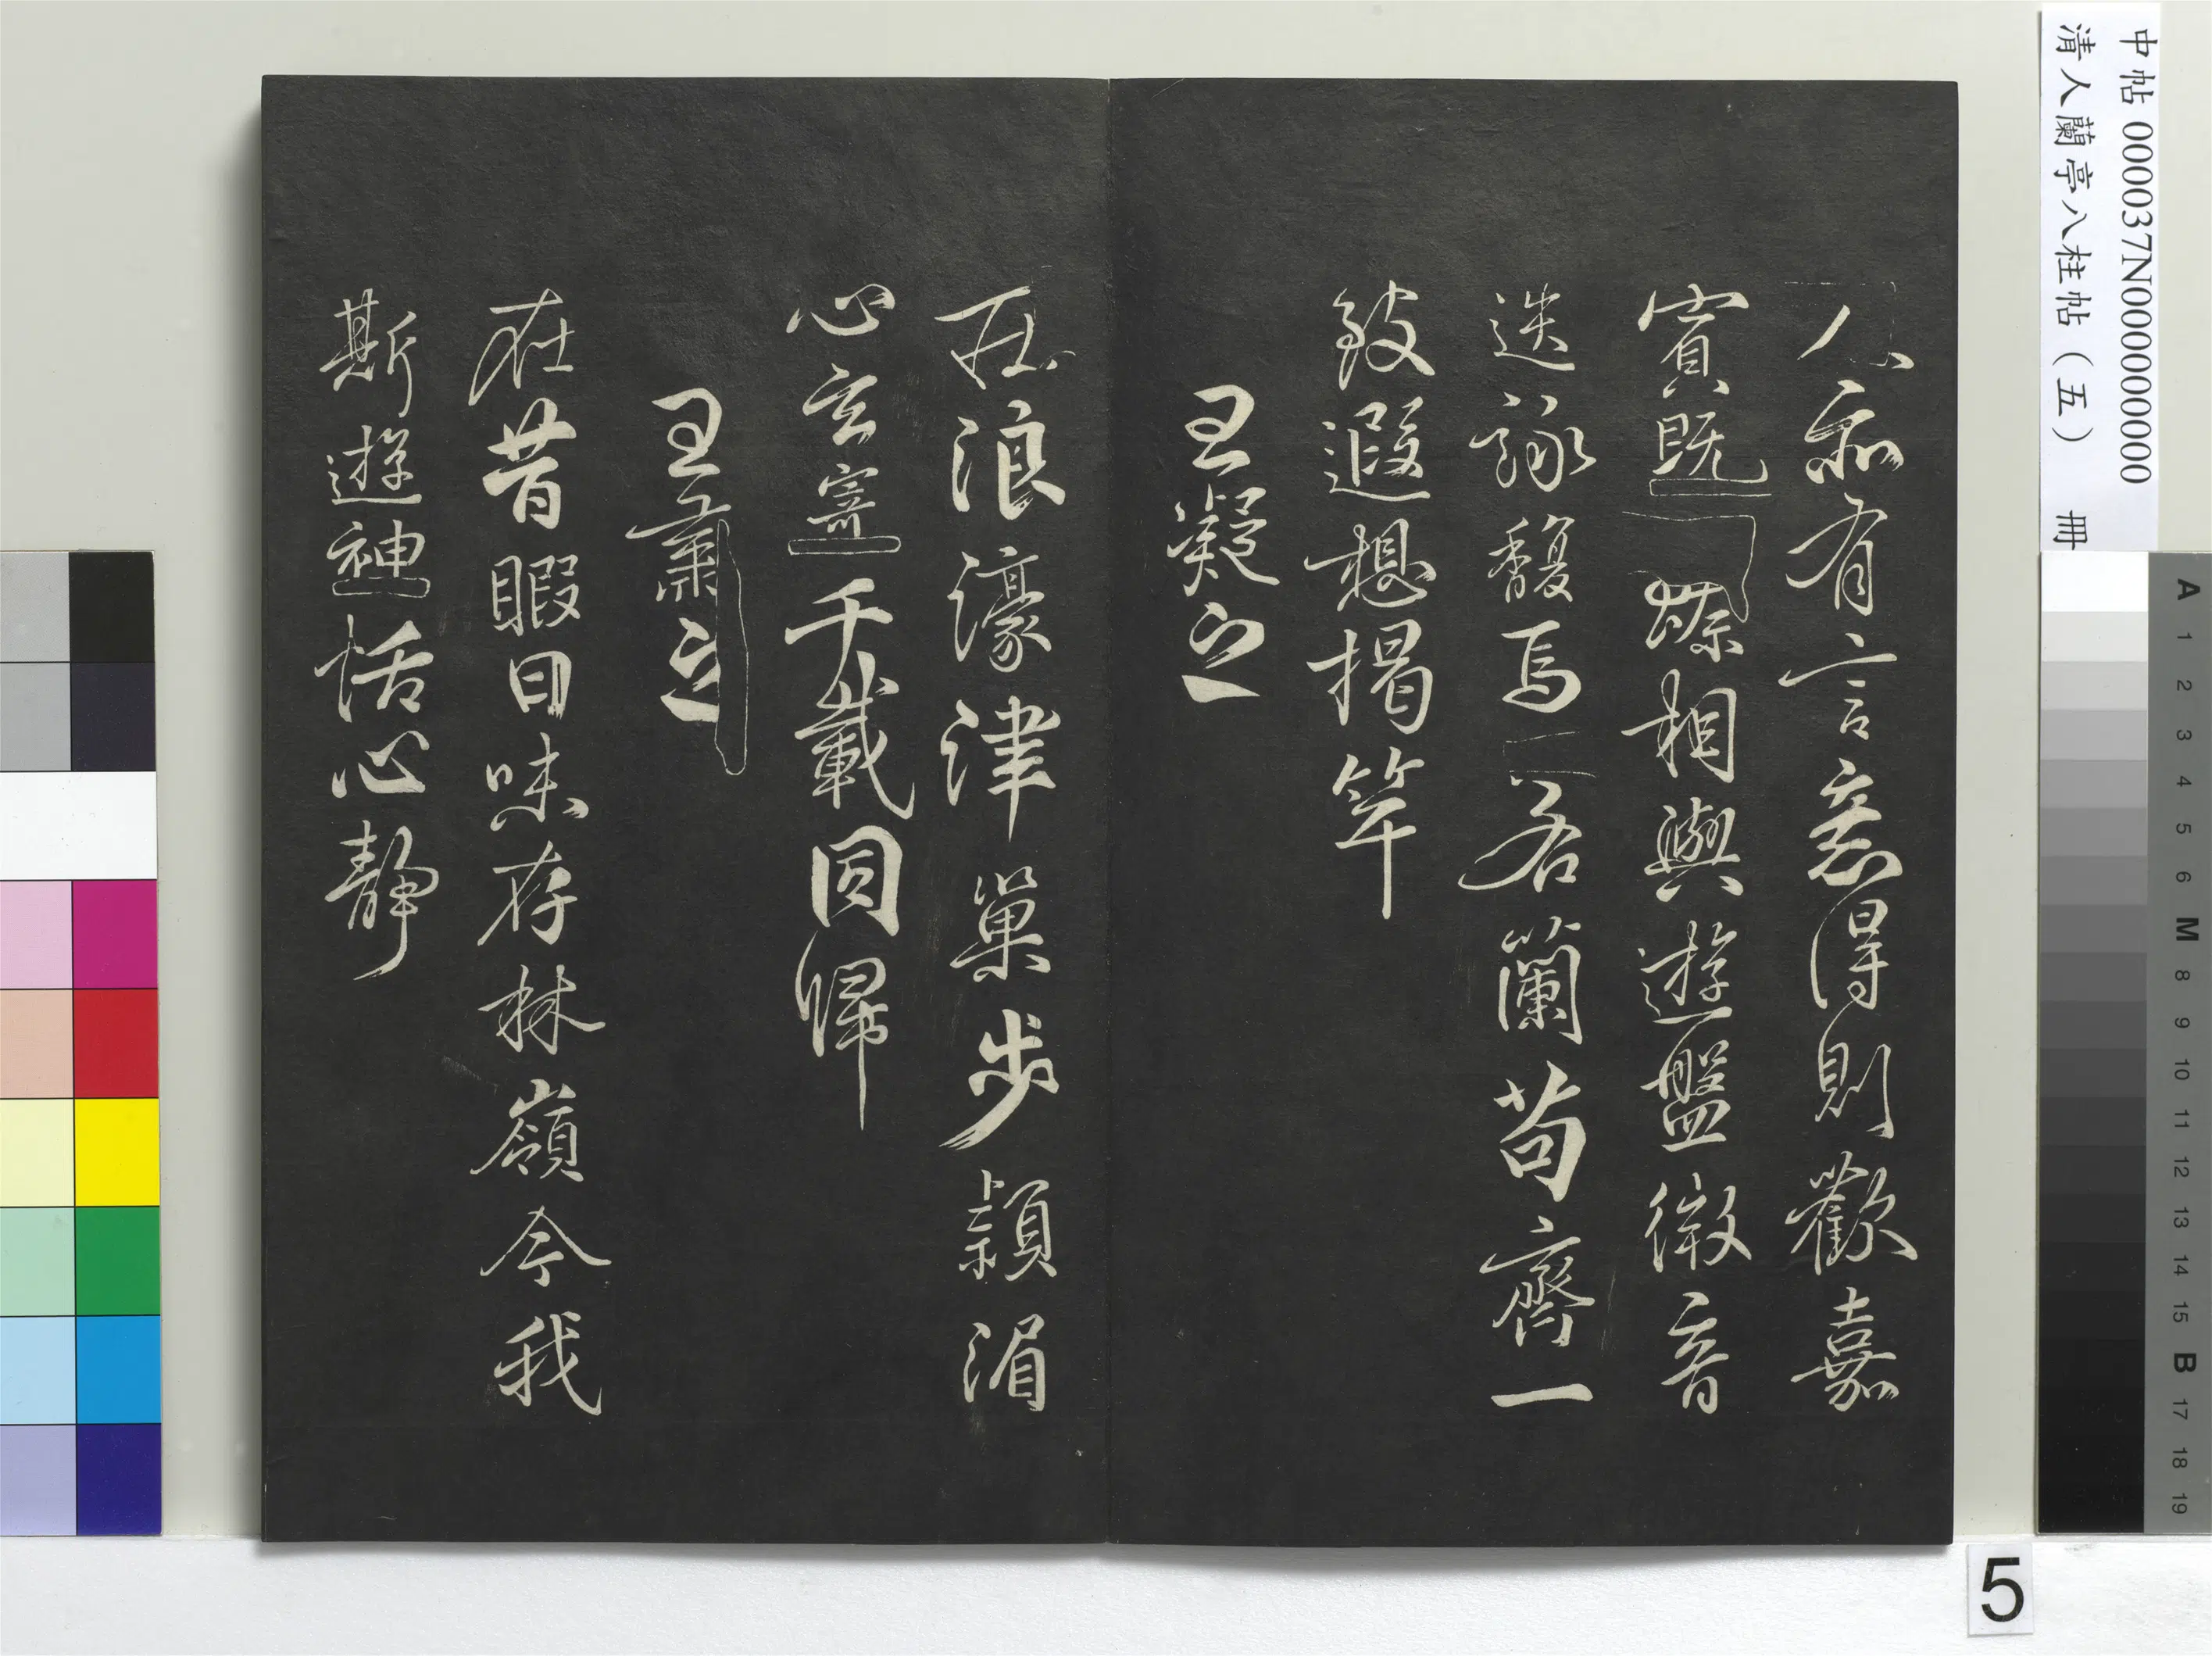 中帖 000037N000000000
清人蘭亭八柱帖（五） 冊
人亦有言意得則歡嘉
賓既臻相與遊盤微音
迭詠馥焉若蘭苟齊一
致遐想揭竿
王凝之
庒浪濠津巢步潁湄
心玄寄千載同歸
王肅之
在昔暇日味存林嶺今我
斯遊神恬心靜
A 1 2 3 4 5 6 M 8 9 10 11 12 13 14 15 B 17 18 19
5